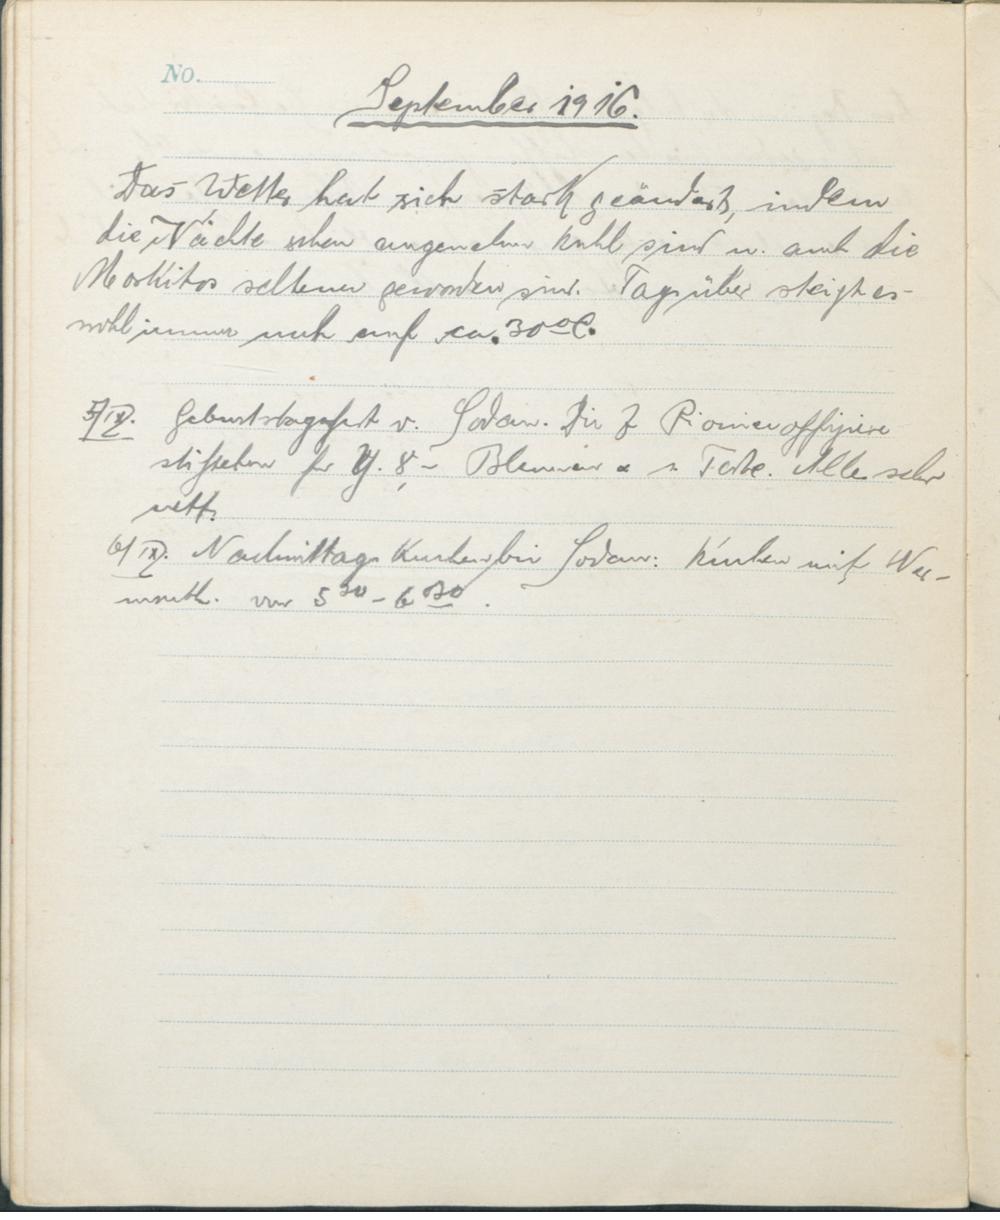 No.
September 1916.
Das Wetter hat sich stark geändert, indem
die Nächte schon angenehm kühl sind u. auch die
Moskitos seltener geworden sind. Tagsüber steigt es
wohl immer noch auf ca. 30°C.
5/IX. Geburtstagsfest v. Sodan. Die Pionieroffiziere
Alle sehr
nett.
6/IX. Nachmittags Kuchen bei Sodan: Kuchen mit Wer-
muth. von 5 30 - 6 30.